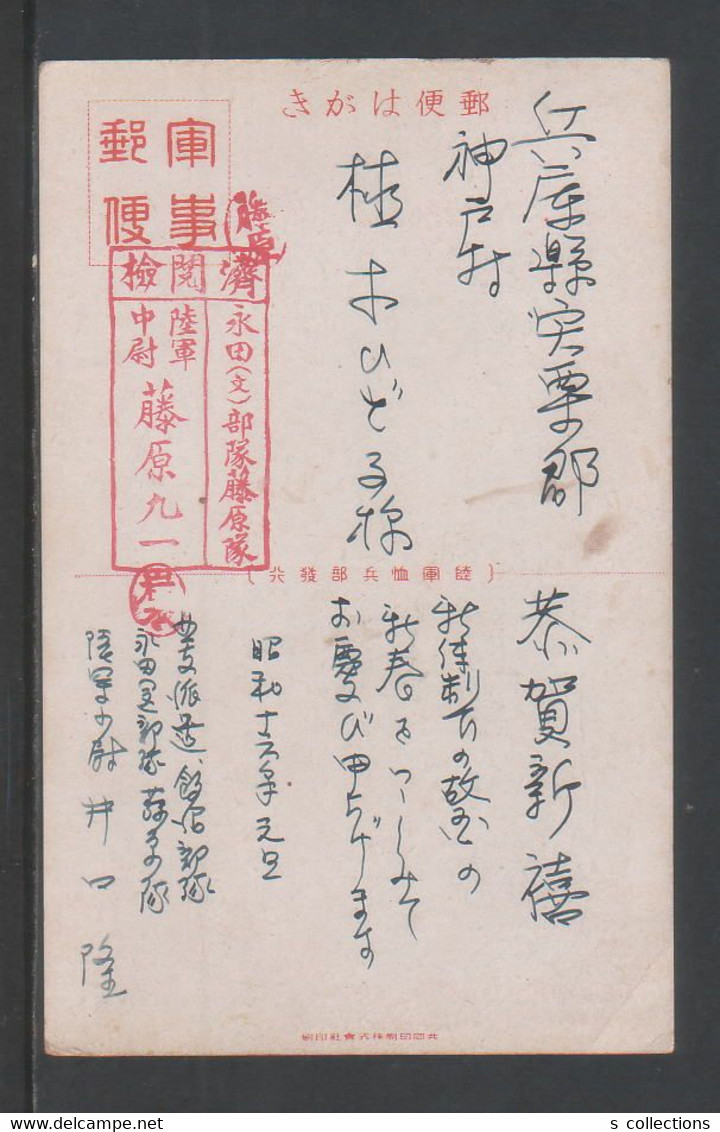 郵便はがき
軍事
郵便
藤原
檢閲濟
永田(文)部隊藤原隊
陸軍
中尉
藤原九一
兵庫縣宍粟郡
神戸村
植木ひで子様
(陸軍恤兵部發行)
恭賀新禧
新体制下の故国の
新春をつゝしみて
お慶び申上げます
昭和十六年元旦
北支派遣、飯沼部隊
永田部隊藤原隊
陸軍少尉 井口 隆
共同印刷株式會社印刷
s collections